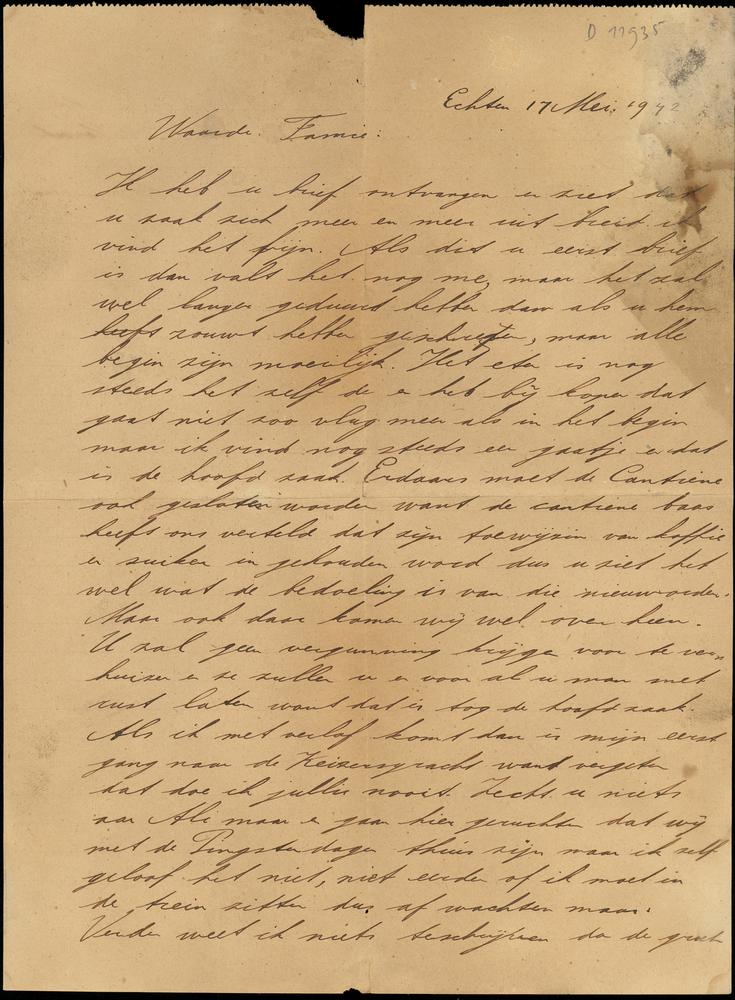 D 11935
Echten 17 Mei. 1942
Waarde Famie:
Ik heb u brief ontvangen en ziet dat
u zaak zich meer en meer uit breid ik
vind het fijn. Als dit u eerst brief
is dan valt het nog me, maar het zal
wel langer geduurd hebben dan als u hem
heeft zouwt hebben geschreefen, maar alle
begin zijn moeilijk. Het eten is nog
steeds het zelf de en het bij kopen dat
gaat niet zoo vlug meer als in het begin
maar ik vind nog steeds een gaatje en dat
is de hoofd zaak. Erdaars moet de Cantiene
ook gesloten worden want de cantiene baas
heeft ons verteld dat zijn toewijzin van koffie
en suiker in gehouden word dus u ziet het
wel wat de bedoeling is van die nieuworden.
Maar ook daar komen wij wel over heen.
U zal geen vergunning krijgen voor te ver-
huizen en ze zullen u en voor al u man met
rust laten want dat is tog de hoofdzaak.
Als ik met verlof komt dan is mijn eerst
gang naar de Keizersgracht want vergeten
dat doe ik jullie nooit. Zecht u niets
aan Ali maar er gaan hier geruchten dat wij
met de Pingsterdagen thuis zijn maar ik zelf
geloof het niet, niet eerder of ik moet in
de trein zitten dus af wachten maar.
Verder weet ik niets teschrijven do de groet